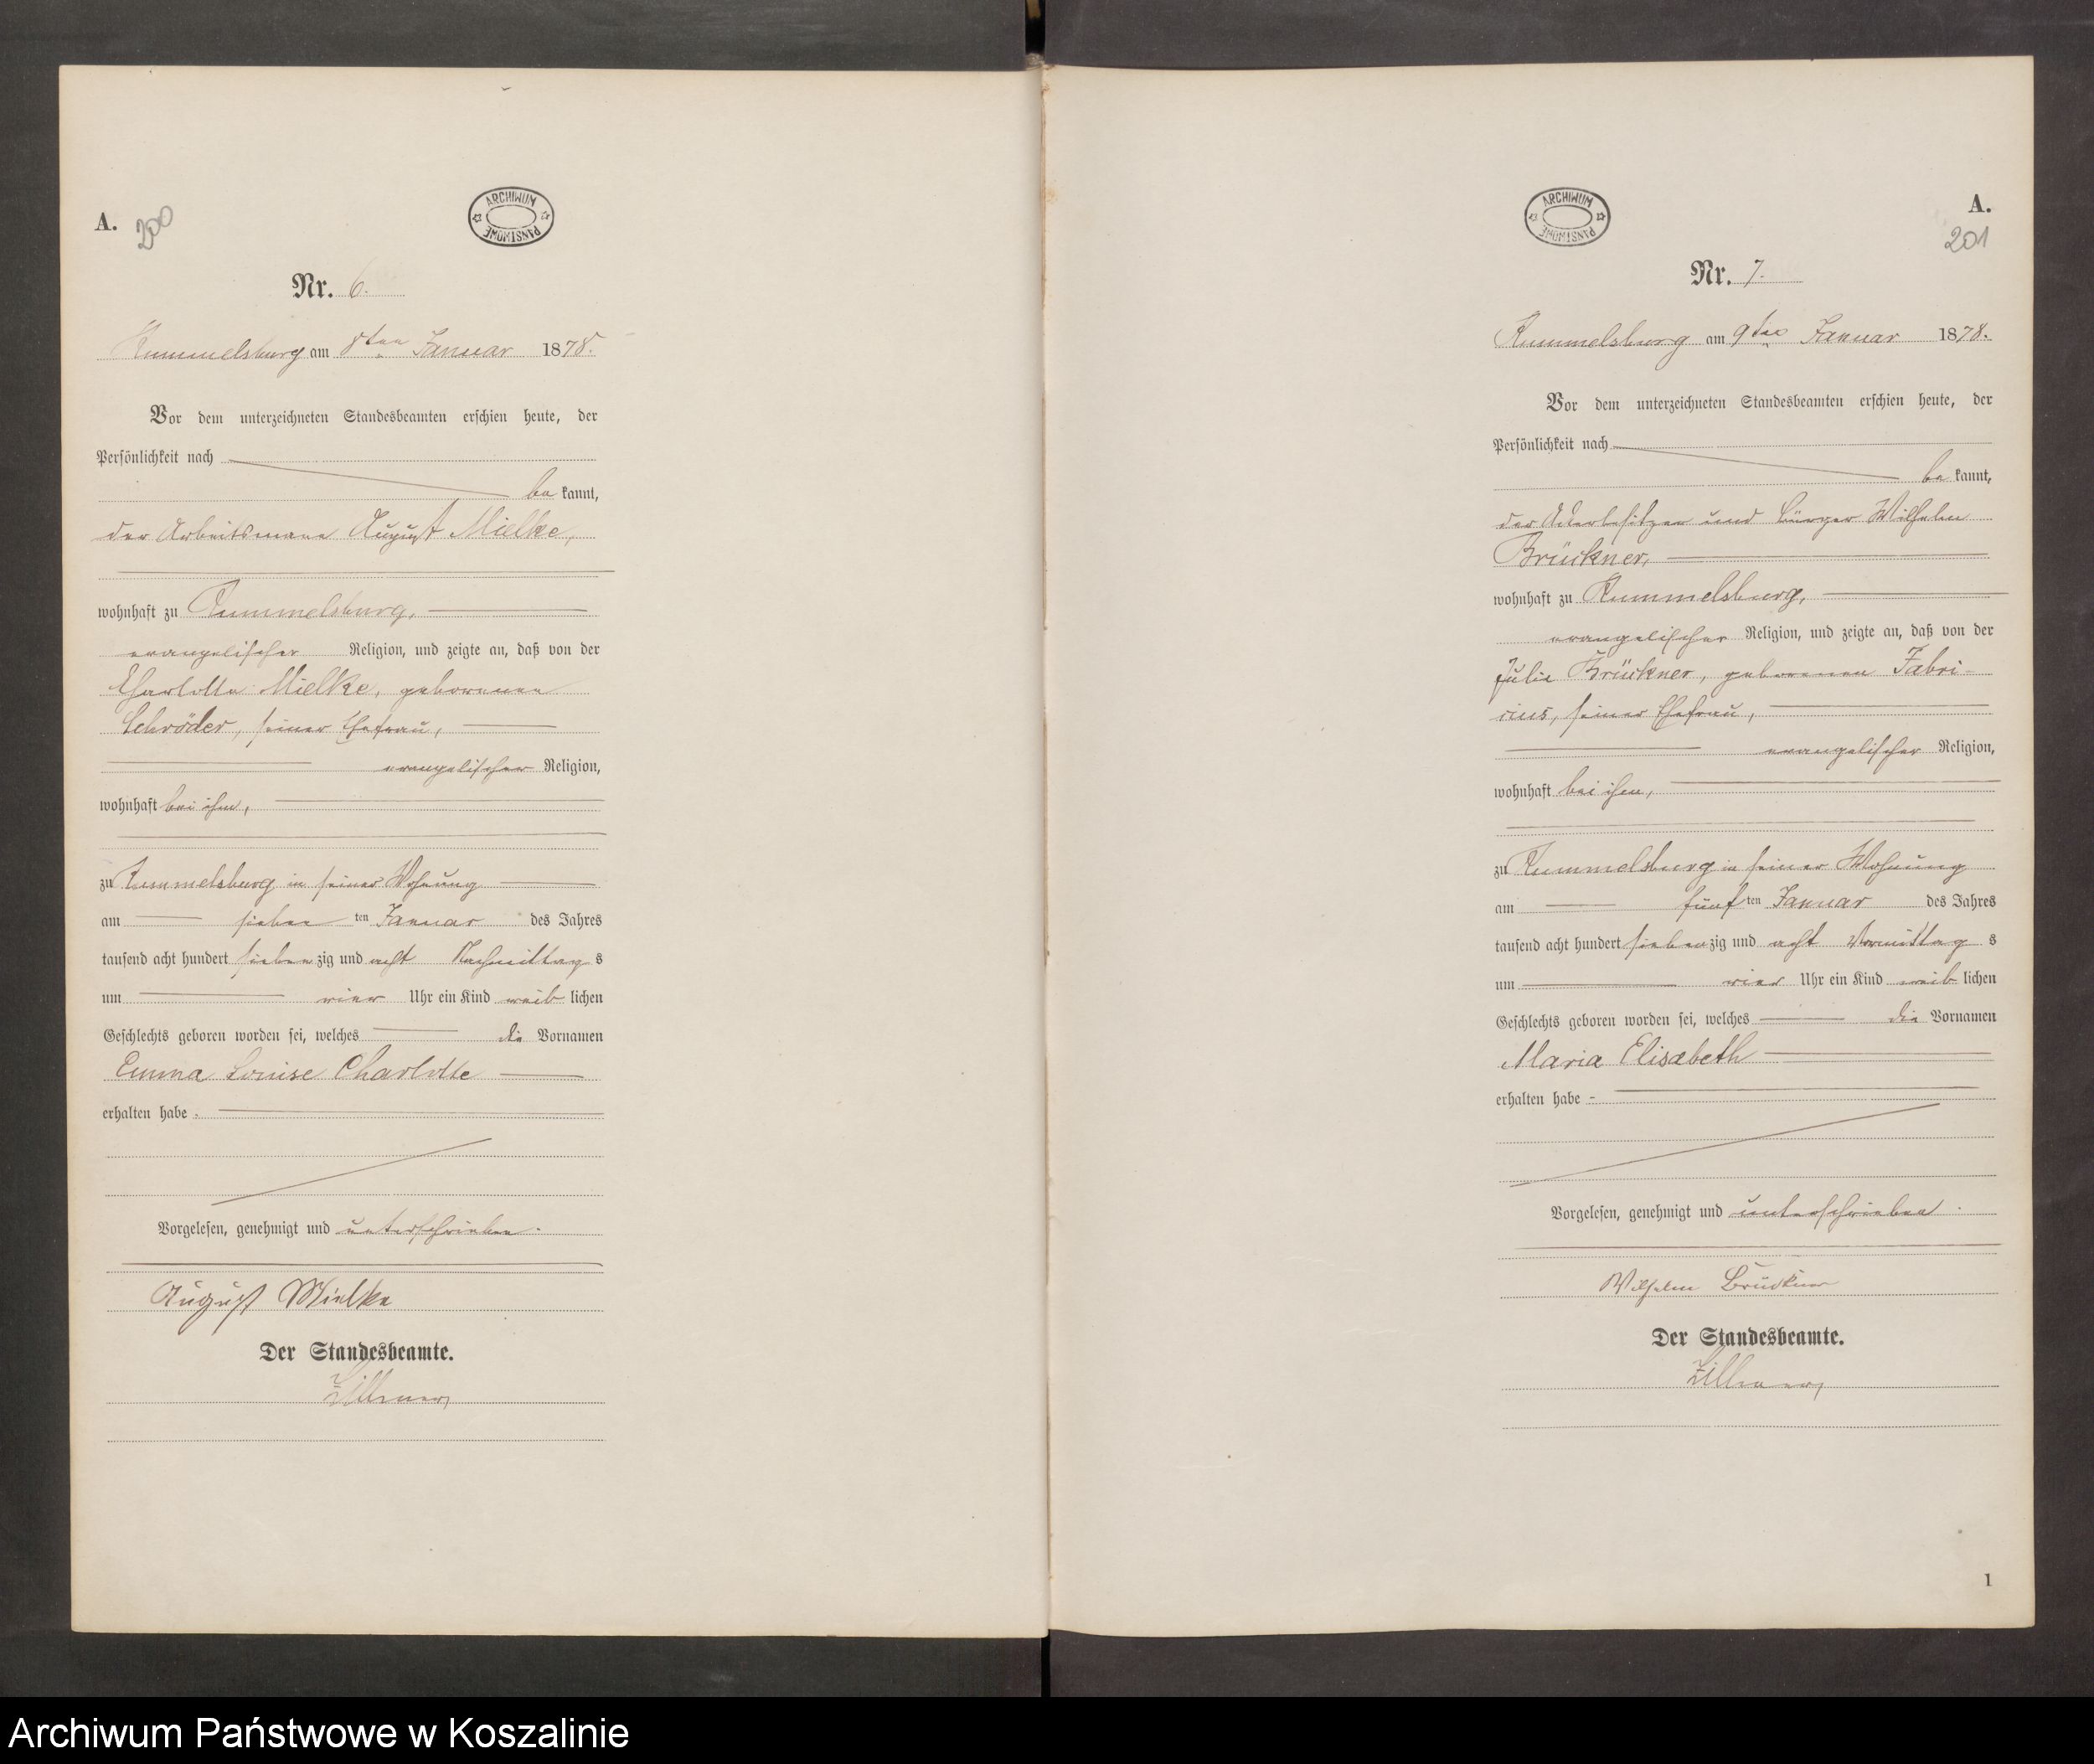 A. 200
ARCHIWUM PAŃSTWOWE
Nr. 6.
Rummelsburg am 8ten Januar 1878.
Vor dem unterzeichneten Standesbeamten erschien heute, der
Persönlichkeit nach
bekannt,
der Arbeitsmann August Mielke,
wohnhaft zu Rummelsburg,
evangelischer Religion, und zeigte an, daß von der
Charlotte Mielke, geborenen
Schröder, seiner Ehefrau,
evangelischer Religion,
wohnhaft bei ihm,
zu Rummelsburg in seiner Wohnung
am sieben ten Januar des Jahres
tausend acht hundert siebenzig und acht Nachmittags
um vier Uhr ein Kind weiblichen
Geschlechts geboren worden sei, welches die Vornamen
Emma Louise Charlotte
erhalten habe.
Vorgelesen, genehmigt und unterschrieben.
August Mielke
Der Standesbeamte.
Zillmer
ARCHIWUM PAŃSTWOWE
A.
201
Nr. 7.
Rummelsburg am 9ten Januar 1878.
Vor dem unterzeichneten Standesbeamten erschien heute, der
Persönlichkeit nach
bekannt,
der Ackerbesitzer und Bürger Wilhelm
Brückner,
wohnhaft zu Rummelsburg,
evangelischer Religion, und zeigte an, daß von der
Julie Brückner, geborenen Fabri-
cius, seiner Ehefrau,
evangelischer Religion,
wohnhaft bei ihm,
zu Rummelsburg in seiner Wohnung
am fünf ten Januar des Jahres
tausend acht hundert siebenzig und acht Vormittags
um vier Uhr ein Kind weiblichen
Geschlechts geboren worden sei, welches die Vornamen
Maria Elisabeth
erhalten habe -
Vorgelesen, genehmigt und unterschrieben.
Wilhelm Brückner
Der Standesbeamte.
Zillmer
1
Archiwum Państwowe w Koszalinie